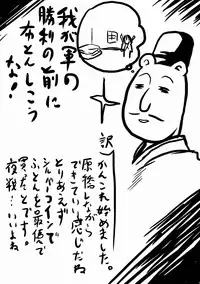 我が軍の
勝利の前に
布とんしこう
な!
訳
かんこれ始めました。
原稿しながら
できていい感じだね
とりあえず
シルバーコインで
ふとんを最優で
買ったとです。
夜戦…いいよね